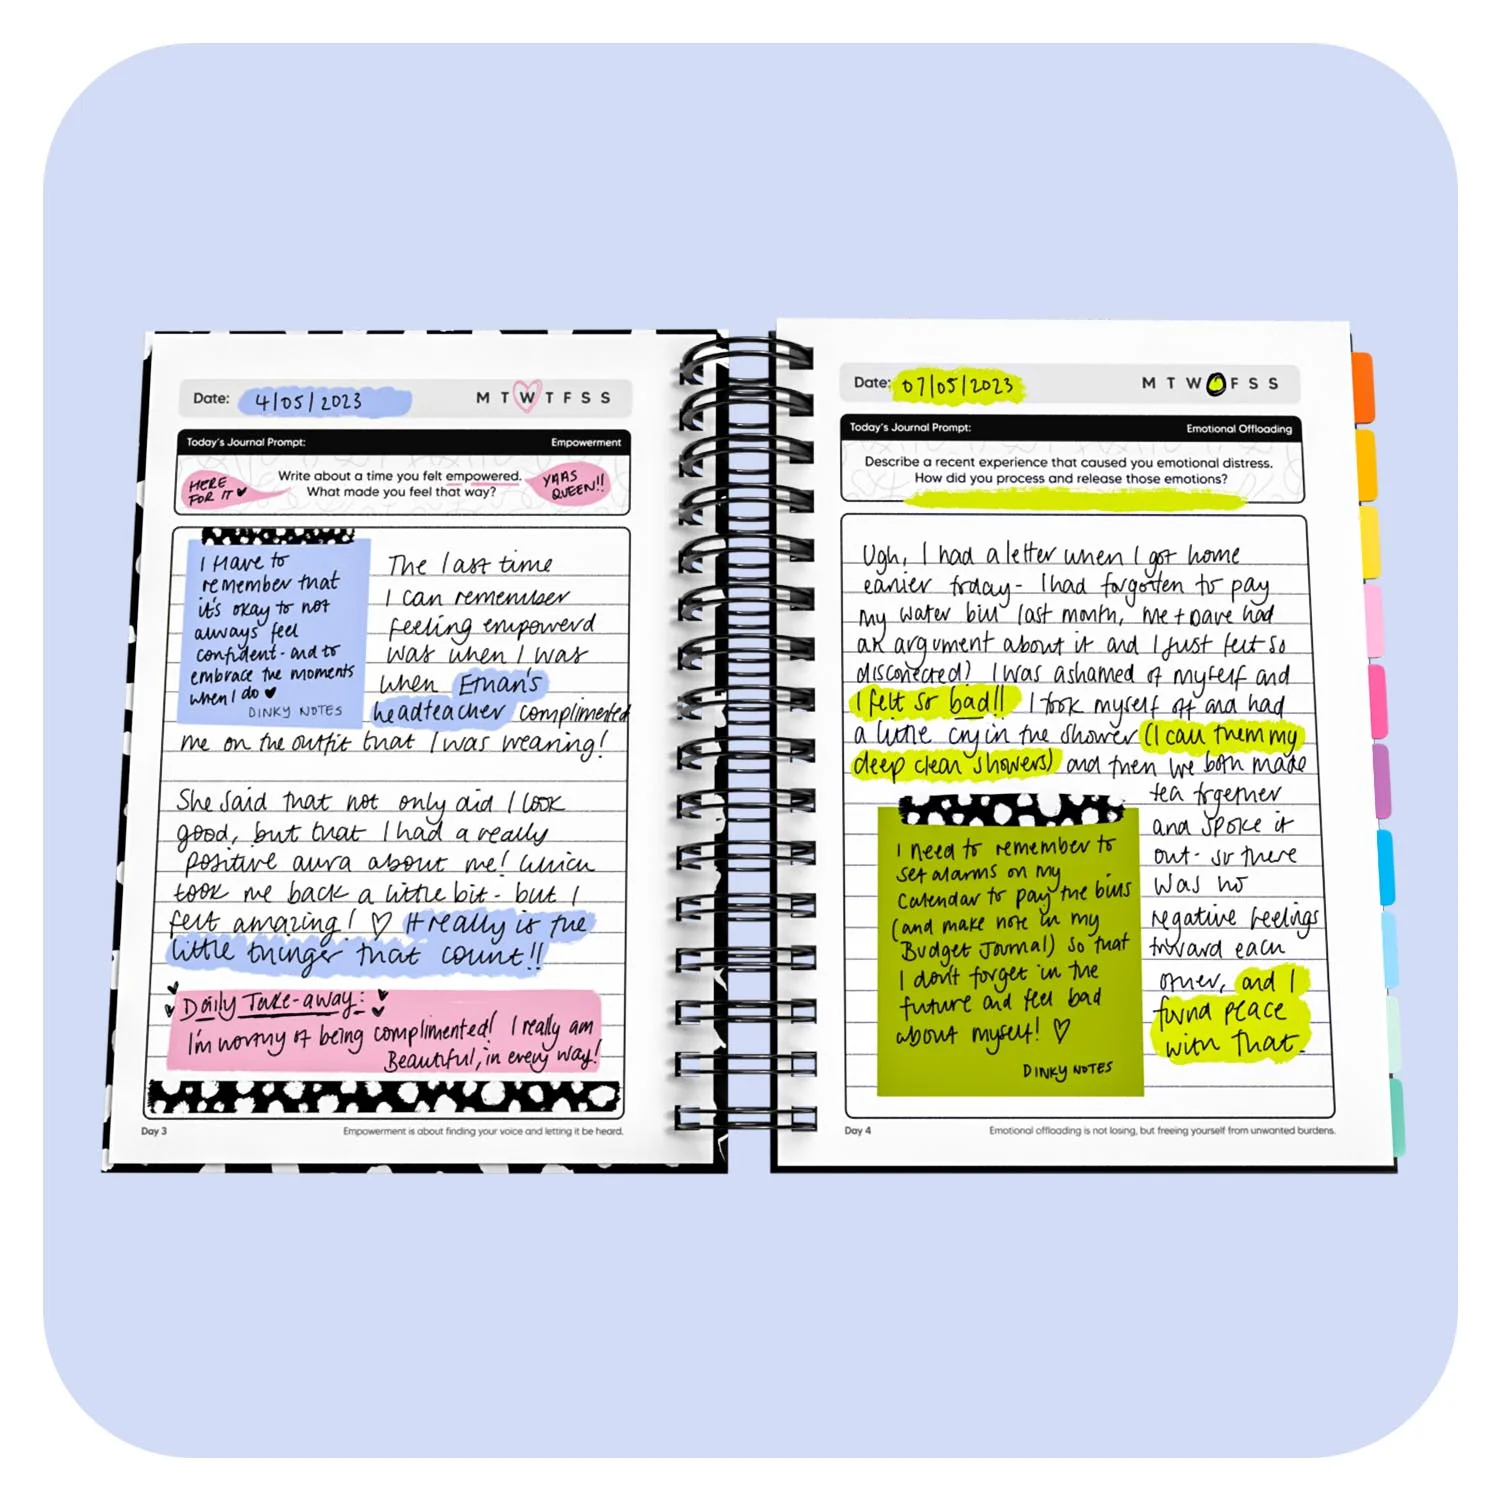 Date: 4/05/2023
M T W T F S S
Today's Journal Prompt: Empowerment
HERE
FOR IT
Write about a time you felt empowered.
What made you feel that way?
YAAS
QUEEN!!
I Have to
remember that
it's okay to not
always feel
confident - and to
embrace the moments
when I do
DINKY NOTES
The last time
I can remember
feeling empowerd
was when I was
when Ethan's
headteacher complimented
me on the outfit that I was wearing!
She said that not only did I look
good, but that I had a really
positive aura about me! Which
took me back a little bit - but I
felt amazing! ♡ It really is the
little thinger that count!!
Daily Take-away:
I'm worthy of being complimented! I really am
Beautiful, in every way!
Day 3
Empowerment is about finding your voice and letting it be heard.
Date: 07/05/2023
M T W F S S
Today's Journal Prompt: Emotional Offloading
Describe a recent experience that caused you emotional distress.
How did you process and release those emotions?
Ugh, I had a letter when I got home
earlier today - I had forgotten to pay
my water bill last month, me + Dave had
an argument about it and I just felt so
disconected! I was ashamed of myself and
I felt so bad!! I took myself off and had
a little cry in the shower (I call them my
deep clean showers) and then we both made
tea together
and spoke it
out - so there
was no
negative feelings
toward each
other, and I
found peace
with that.
I need to remember to
set alarms on my
Calendar to pay the bills
(and make note in my
Budget Journal) so that
I don't forget in the
future and feel bad
about myself! ♡
DINKY NOTES
Day 4
Emotional offloading is not losing, but freeing yourself from unwanted burdens.